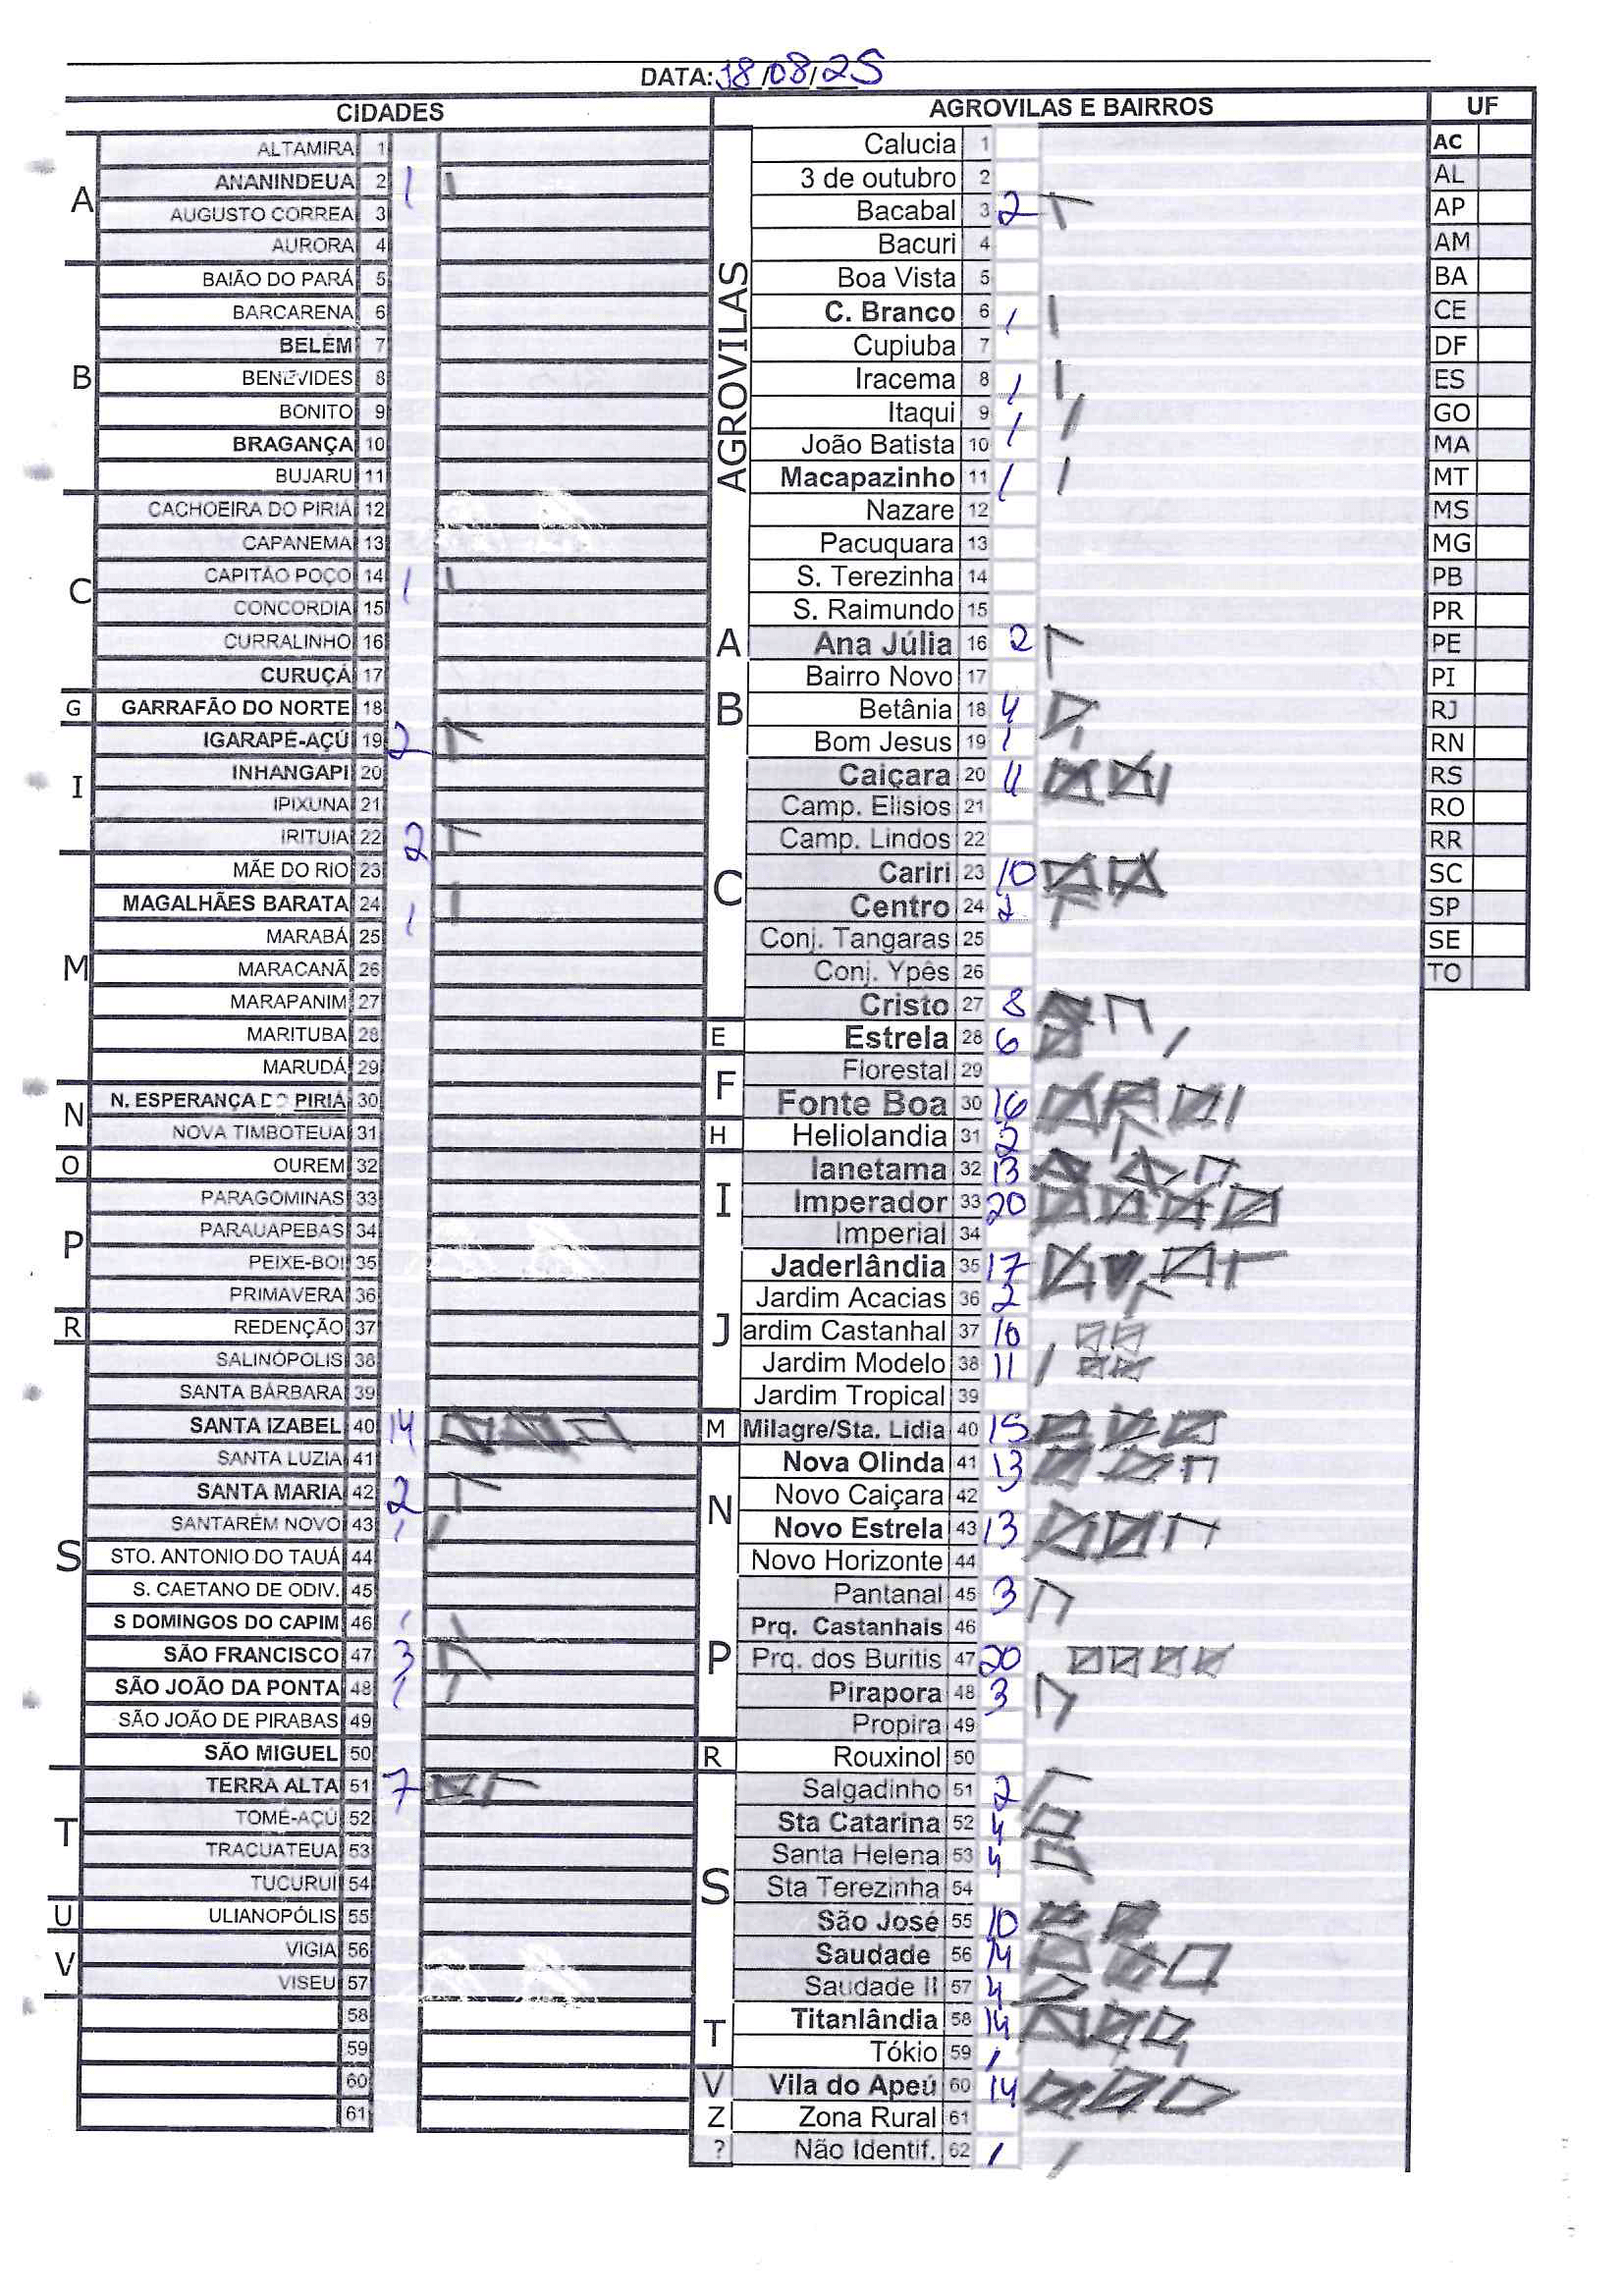 DATA: 18/08/25
CIDADES
AGROVILAS E BAIRROS
UF
A
ALTAMIRA 1
ANANINDEUA 2 1
AUGUSTO CORREA 3
AURORA 4
B
BAIÃO DO PARÁ 5
BARCARENA 6
BELÉM 7
BENEVIDES 8
BONITO 9
BRAGANÇA 10
BUJARU 11
C
CACHOEIRA DO PIRIÁ 12
CAPANEMA 13
CAPITÃO POÇO 14 1
CONCORDIA 15
CURRALINHO 16
CURUÇÁ 17
G
GARRAFÃO DO NORTE 18
I
IGARAPÉ-AÇÚ 19 2
INHANGAPI 20
IPIXUNA 21
IRITUIA 22 2
M
MÃE DO RIO 23
MAGALHÃES BARATA 24 1
MARABÁ 25
MARACANÃ 26
MARAPANIM 27
MARITUBA 28
MARUDÁ 29
N
N. ESPERANÇA DO PIRIÁ 30
NOVA TIMBOTEUA 31
O
OUREM 32
P
PARAGOMINAS 33
PARAUAPEBAS 34
PEIXE-BOI 35
PRIMAVERA 36
R
REDENÇÃO 37
S
SALINÓPOLIS 38
SANTA BÁRBARA 39
SANTA IZABEL 40 14
SANTA LUZIA 41
SANTA MARIA 42 2
SANTARÉM NOVO 43 1
STO. ANTONIO DO TAUÁ 44
S. CAETANO DE ODIV. 45
S DOMINGOS DO CAPIM 46 1
SÃO FRANCISCO 47 3
SÃO JOÃO DA PONTA 48 1
SÃO JOÃO DE PIRABAS 49
SÃO MIGUEL 50
T
TERRA ALTA 51 7
TOMÉ-AÇÚ 52
TRACUATEUA 53
TUCURUÍ 54
U
ULIANOPÓLIS 55
V
VIGIA 56
VISEU 57
58
59
60
61
AGROVILAS
Calucia 1
3 de outubro 2
Bacabal 3 2
Bacuri 4
Boa Vista 5
C. Branco 6 1
Cupiuba 7
Iracema 8 1
Itaqui 9 1
João Batista 10
Macapazinho 11 1
Nazare 12
Pacuquara 13
S. Terezinha 14
S. Raimundo 15
A
Ana Júlia 16 2
B
Bairro Novo 17
Betânia 18 4
Bom Jesus 19 1
C
Caiçara 20 11
Camp. Elisios 21
Camp. Lindos 22
Cariri 23 10
Centro 24 2
Conj. Tangaras 25
Conj. Ypês 26
Cristo 27 8
E
Estrela 28 6
F
Florestal 29
Fonte Boa 30 16
H
Heliolandia 31 2
I
Ianetama 32 13
Imperador 33 20
Imperial 34
J
Jaderlândia 35 17
Jardim Acacias 36 2
ardim Castanhal 37 10
Jardim Modelo 38 11
Jardim Tropical 39
M
Milagre/Sta. Lidia 40 15
N
Nova Olinda 41 13
Novo Caiçara 42
Novo Estrela 43 13
Novo Horizonte 44
P
Pantanal 45 3
Prq. Castanhais 46
Prq. dos Buritis 47 20
Pirapora 48 3
Propira 49
R
Rouxinol 50
S
Salgadinho 51 2
Sta Catarina 52 4
Santa Helena 53 4
Sta Terezinha 54
São José 55 10
Saudade 56 14
Saudade II 57 4
T
Titanlândia 58 14
Tókio 59 1
V
Vila do Apeú 60 14
Z
Zona Rural 61
?
Não Identif. 62 1
AC
AL
AP
AM
BA
CE
DF
ES
GO
MA
MT
MS
MG
PB
PR
PE
PI
RJ
RN
RS
RO
RR
SC
SP
SE
TO